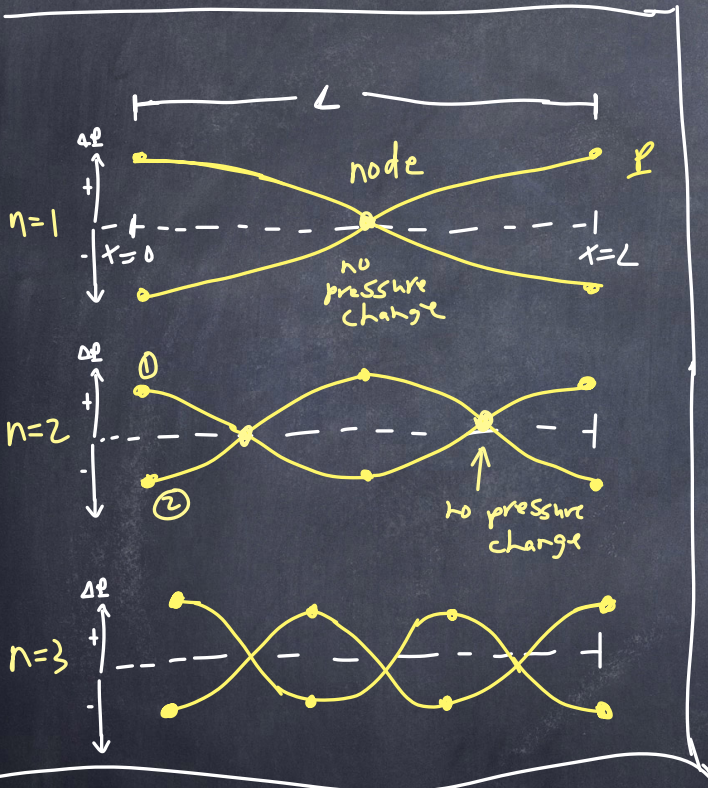 L
ΔP
+
node
P
n=1
-
x=0
x=L
no
pressure
change
ΔP
①
+
n=2
-
②
no pressure
change
ΔP
+
n=3
-